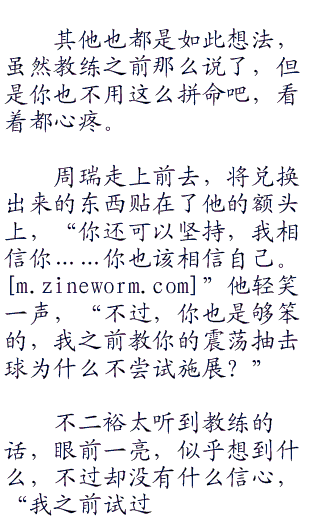 其他也都是如此想法，
虽然教练之前那么说了，但
是你也不用这么拼命吧，看
着都心疼。
周瑞走上前去，将兑换
出来的东西贴在了他的额头
上，“你还可以坚持，我相
信你……你也该相信自己。
[m.zineworm.com]”他轻笑
一声，“不过，你也是够笨
的，我之前教你的震荡抽击
球为什么不尝试施展？”
不二裕太听到教练的
话，眼前一亮，似乎想到什
么，不过却没有什么信心，
“我之前试过